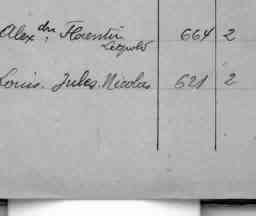 Alex dre Florentin 664 2
Léopold
Louis. Jules. Nicolas 621 2